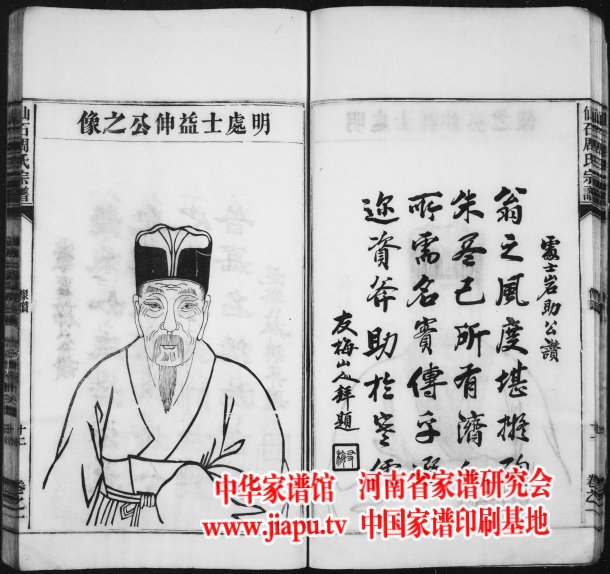 處士岩助公讚
翁之風度堪擬
朱盡己所有濟
所需名實傳乎
邇資斧助於寒儒
友梅山人拜題
明處士益伸公之像
仙石周氏宗譜
十二
卷之一
中华家谱馆 河南省家谱研究会
www.jiapu.tv 中国家谱印刷基地